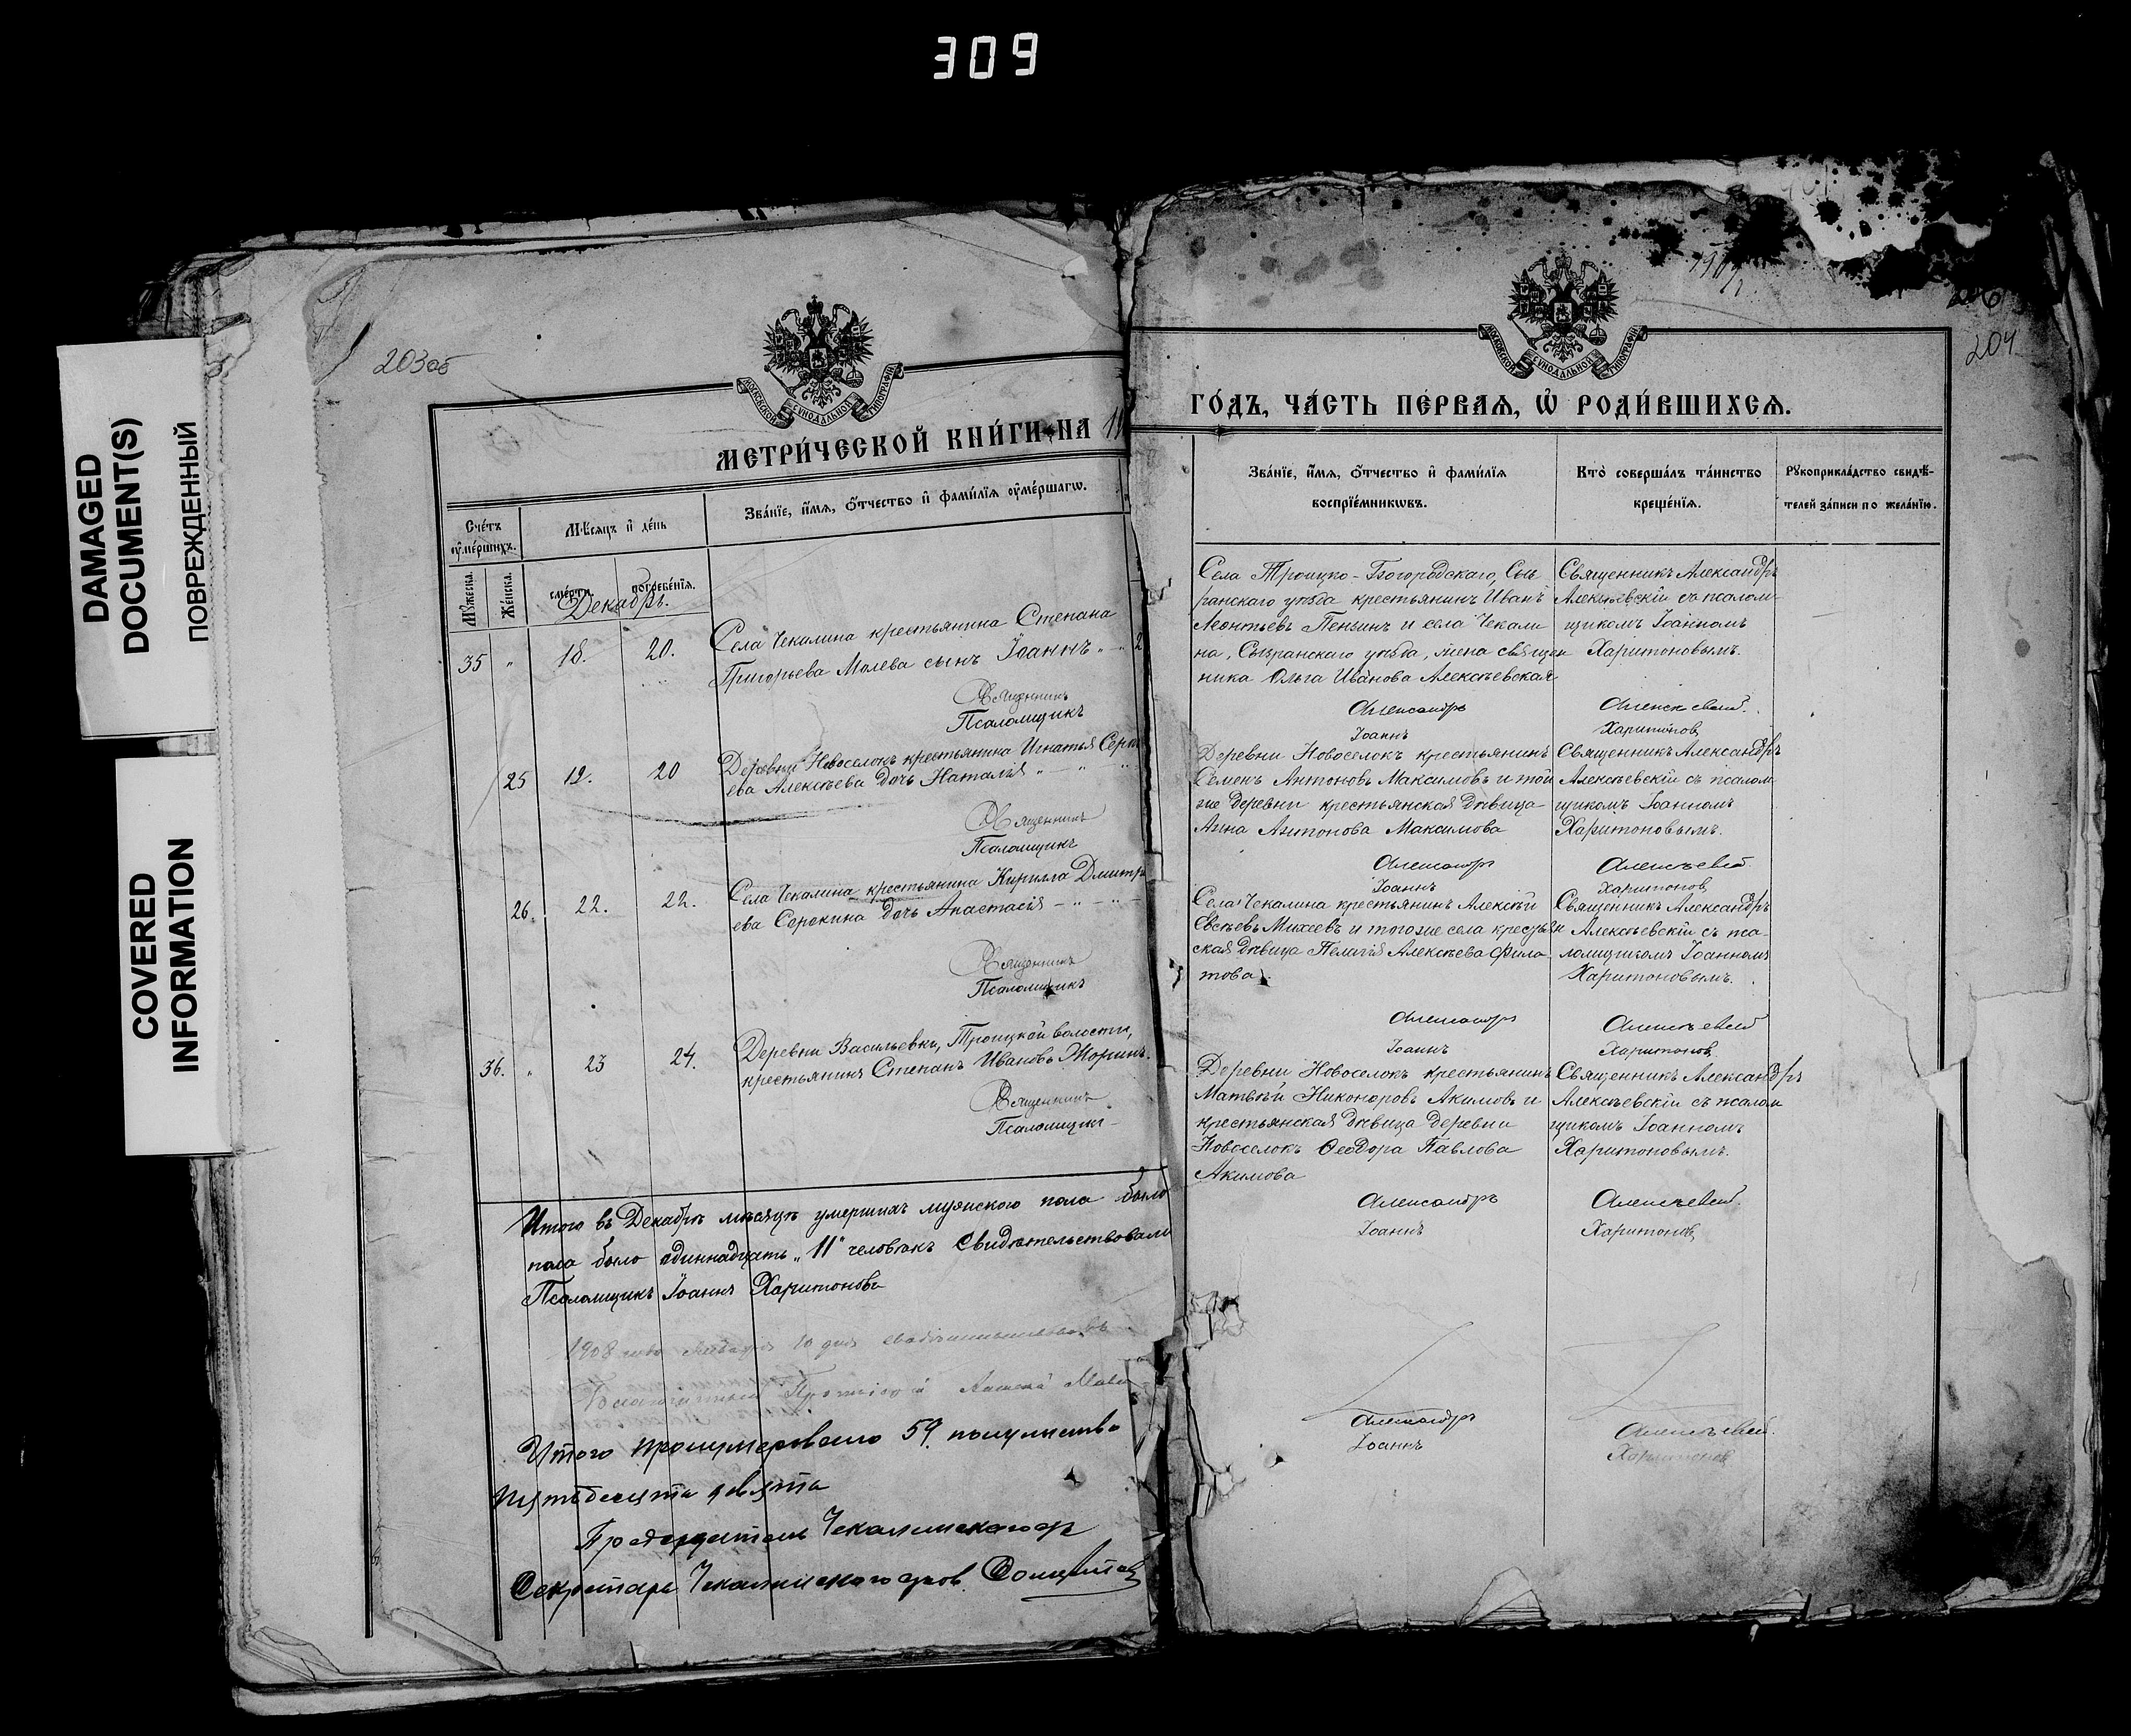 309
DAMAGED
DOCUMENT(S)
ПОВРЕЖДЕННЫЙ
COVERED
INFORMATION
203об
МОСКОВСКОЙ СѴНОДАЛЬНОЙ ТИПОГРАФІИ
МЕТРИ́ЧЕСКОЙ КНИ́ГИ НА 1
Сче́тъ ᲂу҆ме́ршихъ.
Мѣ́сѧцъ и҆ де́нь
Зва́нїе, и҆́мѧ, ѻ҆́тчество и҆ фами́лїѧ ᲂу҆ме́ршагѡ.
Мꙋ́жеска.
Же́нска.
сме́рти.
погребе́нїѧ.
Декабрь.
35 " 18. 20. Села Чекалина крестьянина Степана
Григорьева Молева сынъ Іоаннъ " 2
Священникъ
Псаломщикъ
25 19. 20 Деревни Новоселокъ крестьянина Игнатья Серг
ева Алексѣева дочь Наталія " — "
Священникъ
Псаломщикъ
26. 22. 22. Села Чекалина крестьянина Кирилла Дмитрі
ева Сорокина дочь Анастасія — " — " —
Священникъ
Псаломщикъ
36. " 23 24. Деревни Васильевки, Троицкой волости,
крестьянинъ Степанъ Ивановъ Жоринъ.
Священникъ
Псаломщикъ
Итого въ Декабрѣ мѣсяцѣ умершихъ мужскаго пола было
пола было одиннадцать „11" человѣкъ Свидѣтельствовали
Псаломщикъ Іоаннъ Харитоновъ
1908 года 10 дня
Итого пронумеровано 59 полулистовъ
Пятьдесята девята
Председатель Чекалинскаго
Секретарь Чекалинского
1907
204
МОСКОВСКОЙ СѴНОДАЛЬНОЙ ТИПОГРАФІИ
ГО́ДЪ, ЧА́СТЬ ПЕ́РВАѦ, Ѽ РОДИ́ВШИХСѦ.
Зва́нїе, и҆́мѧ, ѻ҆́тчество и҆ фами́лїѧ воспрїе́мникѡвъ.
Кто̀ соверша́лъ та́инство креще́нїѧ.
Рꙋкоприкла́дство свидѣ́телей за́писи по жела́нїю.
Села Троицко-Богородскаго, Сыз
ранскаго уѣзда крестьянинъ Иванъ
Леонтьевъ Пензинъ и села Чекали
на, Сызранскаго уѣзда, жена священ
ника Ольга Иванова Алексѣевская
Священникъ Александръ
Алексѣевскій съ псалом-
щикомъ Іоанномъ
Харитоновымъ.
Александръ Алексѣевскій.
Іоаннъ Харитоновъ
Деревни Новоселокъ крестьянинъ
Семенъ Антоновъ Максимовъ и той
же деревни крестьянская дѣвица
Анна Антонова Максимова
Священникъ Александръ
Алексѣевскій съ псалом
щикомъ Іоанномъ
Харитоновымъ.
Александръ Алексѣевскій
Іоаннъ Харитоновъ
Села Чекалина крестьянинъ Алексѣй
Евсѣевъ Михеевъ и тогоже села крестьян
ская дѣвица Пелагія Алексѣева Фила
това
Священникъ Александръ
Алексѣевскій съ пса-
ломщикомъ Іоанномъ
Харитоновымъ.
Александръ Алексѣевскій
Іоаннъ Харитоновъ
Деревни Новоселокъ крестьянинъ
Матвѣй Никоноровъ Акимовъ и
крестьянская дѣвица деревни
Новоселокъ Ѳеодора Павлова
Акимова
Священникъ Александръ
Алексѣевскій съ псалом
щикомъ Іоанномъ
Харитоновымъ.
Александръ Алексѣевскій.
Іоаннъ Харитоновъ
Александръ Алексѣевскій.
Іоаннъ Харитоновъ